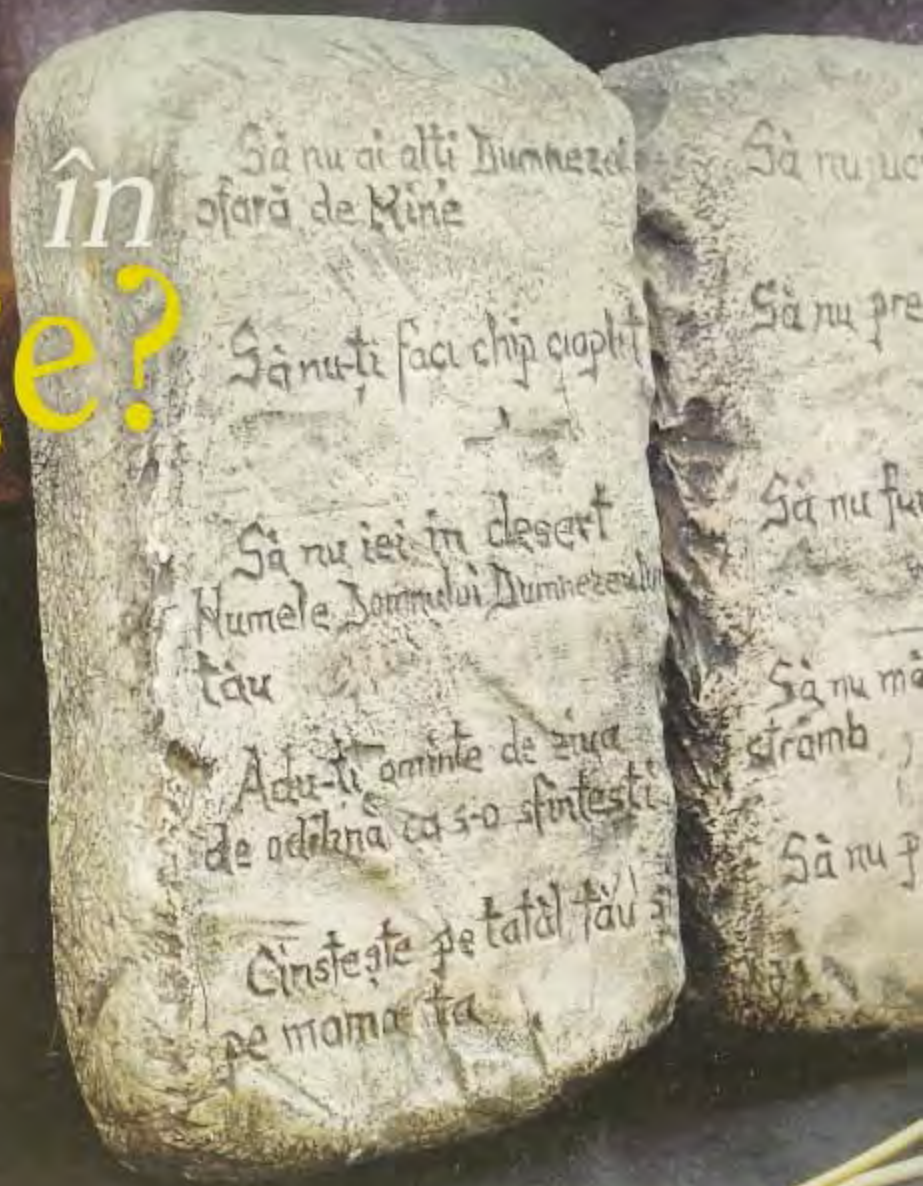 în
e?
Să nu ai alți Dumnezei
afară de Mine
Să nu-ți faci chip cioplit
Să nu iei in desert
Numele Domnului Dumnezeului
tău
Adu-ți aminte de ziua
de odihnă ca s-o sfintești
Cinstește pe tatăl tău
pe mama ta
Să nu
Să nu
Să nu
Să nu
strâmb
Să nu